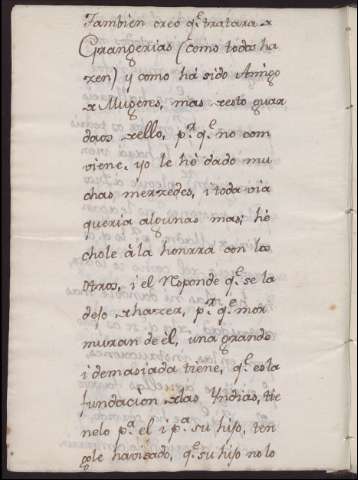 Tambien creo q.e tratara de
Grangerias (como todos ha
zen) y como há sido Amigo
de Mugeres, mas desto guar
daos dello, p.r q.e no com
viene. yo le hé dado mu
chas merzedes, i toda via
queria algunas mas; hé
chole á la honrra con los
Otros, i el Responde q.e se la
dejo de hazer, p.r q.e mor
muran de él, una grande
i demasiada tiene, q.e es la
fundacion de las Yndias, tie
nelo p.a el i p.a su hijo, ten
gole havisado, q.e su hijo no lo